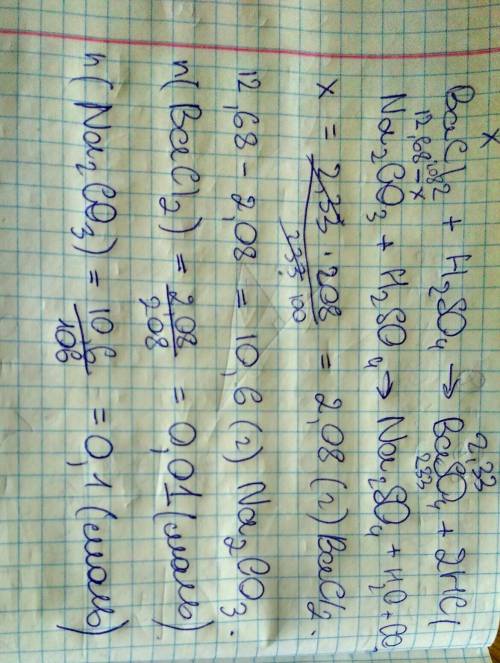 x 2,33
BaCl2 + H2SO4 → BaSO4 + 2HCl
208 233
12,68-x
Na2CO3 + H2SO4 → Na2SO4 + H2O + CO2
x = 2,33 · 208 / 233 = 2,08 (г) BaCl2.
12,68 - 2,08 = 10,6 (г) Na2CO3.
n(BaCl2) = 2,08 / 208 = 0,01 (моль)
n(Na2CO3) = 10,6 / 106 = 0,1 (моль)